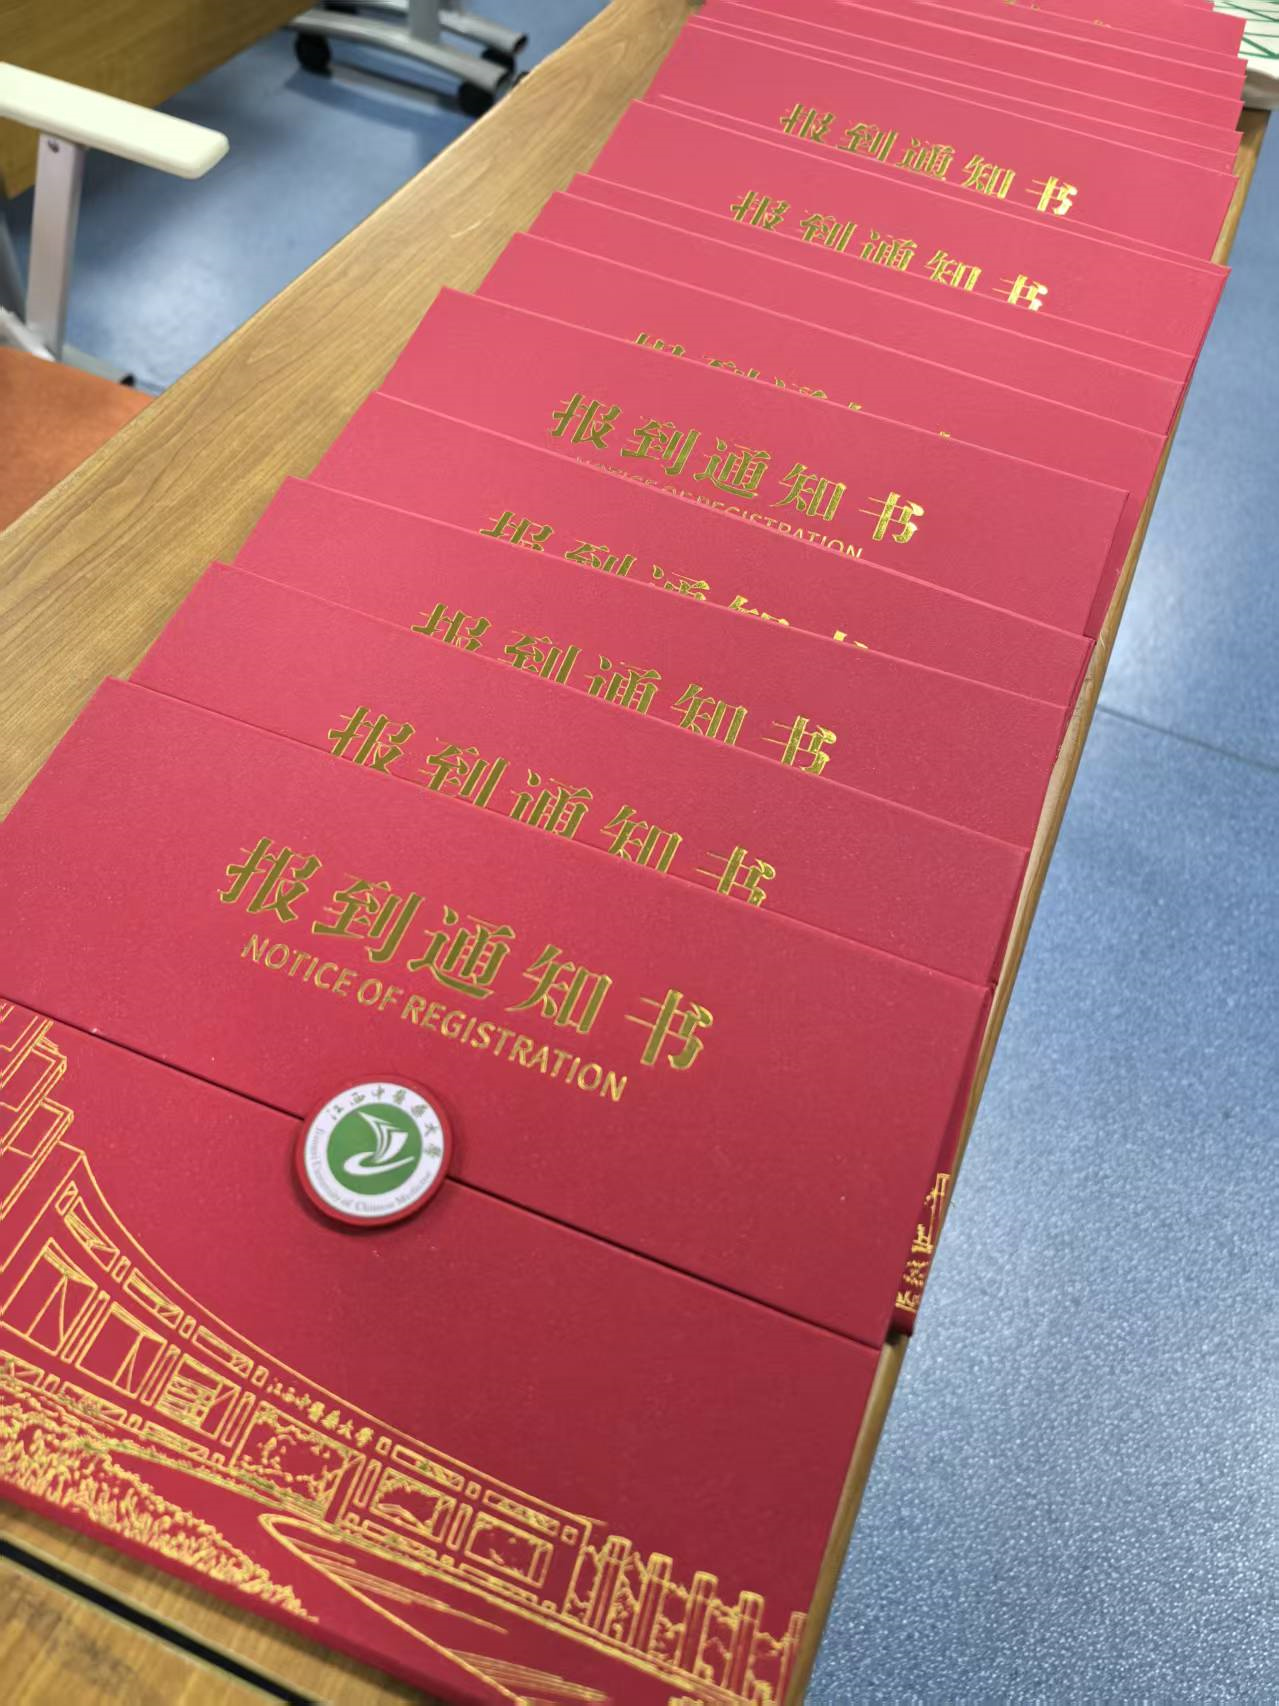 报到通知书
报到通知书
报到通知书
NOTICE OF REGISTRATION
报到通知书
报到通知书
报到通知书
报到通知书
NOTICE OF REGISTRATION
江西中醫藥大學
Jiangxi University of Chinese Medicine
江西中醫藥大學